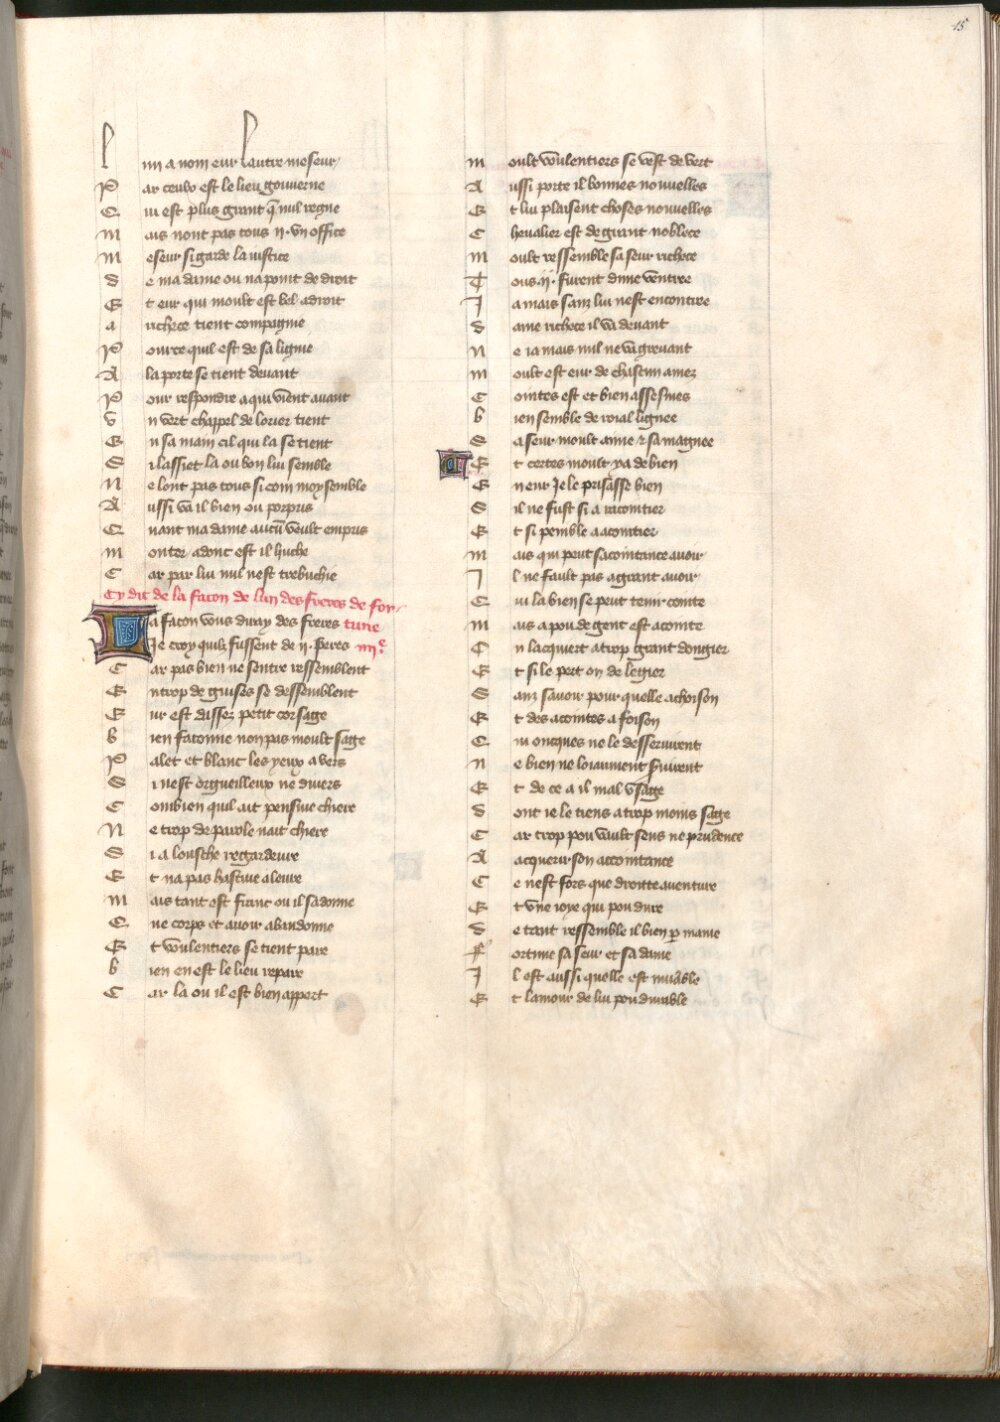 15
L un a nom eur lautre meseur
P ar ceulx est le lieu gouverne
C ui est plus grant q̄ nul regne
M ais nont pas tous .ii. vn office
M eseur si garde la iustice
D e ma dame ou na point de droit
E t eur qui moult est bel adroit
A richece tient compagnie
P ource quil est de sa lignie
A la porte se tient deuant
P our respondre a qui vient auant
V n vert chappel de lorier tient
E n sa main cil qui la se tient
S i lassiet la ou bon lui semble
N e lont pas tous si com moy semble
A ussi va il bien ou porpris
Q uant ma dame aucū veult empris
M onter adonc est il huche
C ar par lui nul nest trebuchie
Cy dit de la facon de lun des freres de for-
L a facon vous diray des freres tune
Je croy quilz fussent de .ii. peres iiii.e
C ar pas bien ne sentre ressemblent
E n trop de guises se dessemblent
E ur est dassez petit corsage
B ien faconne non pas moult sage
P alet et blanc les yeux a vers
S i nest orgueilleux ne diuers
C ombien quil ait pensiue chiere
N e trop de parole nait chiere
S i a lousche regardeure
E t na pas hastiue aleure
M ais tant est franc ou il sadonne
Q ue corps et auoir abandonne
E t voulentiers se tient pare
B ien en est le lieu repare
C ar la ou il est bien appert
M oult voulentiers se vest de vert
A ussi porte il bonnes nouuelles
E t lui plaisent choses nouuelles
C heualier est de grant noblece
M oult ressemble sa seur richece
T ous .ii. furent dune ventree
J amais sanz lui nest encontree
D ame richece il va deuant
N e ia mais nul ne va greuant
M oult est eur de chascun amez
C ointes est et bien assesmes
B ien semble de roial lignee
S a seur moult aime & sa maignee
E t certes moult ya de bien
E n eur Je le prisasse bien
S il ne fust si a racointier
E t si penible a acointier
M ais qui peut sacointance auoir
J l ne fault pas a grant auoir
Q ui la bien se peut tenir cointe
M ais a pou de gent est acointe
E n lacquiert a trop grant dongier
E t si le pert on de legier
S anz sauoir pour quelle achoison
E t des acointes a foison
Q ui oncques ne le desseruirent
N e bien ne loiaument seruirent
E t de ce a il mal vsage
D ont ie le tiens a trop moins sage
C ar trop pou vault sens ne prudence
A acquerir son accointance
C e nest fors que droitte auenture
E t vne ioye qui pou dure
D e tant ressemble il bien p̄ mame
F ortune sa seur et sa dame
J l est aussi quelle est muable
E t lamour de lui pou durable